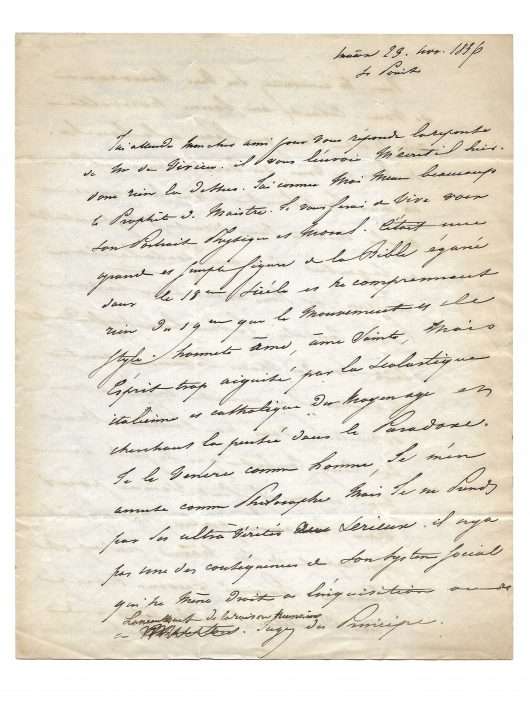 Mâcon 29. nov. 1836
St Point
J'ai attendu mon cher ami pour vous répondre la réponse
de Mr de Virieu. il vous l'envoie m'écrit il hier.
donc rien la dessus. J'ai connu Moi Même beaucoup
le Prophète d. Maistre. Je vous ferai de Vive voix
son Portrait Physique et Moral. C'était une
grande et simple figure de la Bible égaré
dans le 18me Siècle et ne comprennant
rien du 19me que le Mouvement et le
Style. honnete âme, âme Sainte, Mais
Esprit trop aiguisé par la Scolastique
italienne et catholique du Moyen age et
cherchant la pensée dans le Paradoxe.
Je le Vénère comme homme, Je m'en
amuse comme Philosophe Mais Je ne Prends
pas ses ultrà Vérités au Serieux. il n'y a
pas une des conséquences de Son System Social
qui ne Mène Droit a l'inquisition ou
a l'anéantissement de la raison humaine
Jugez du Principe.